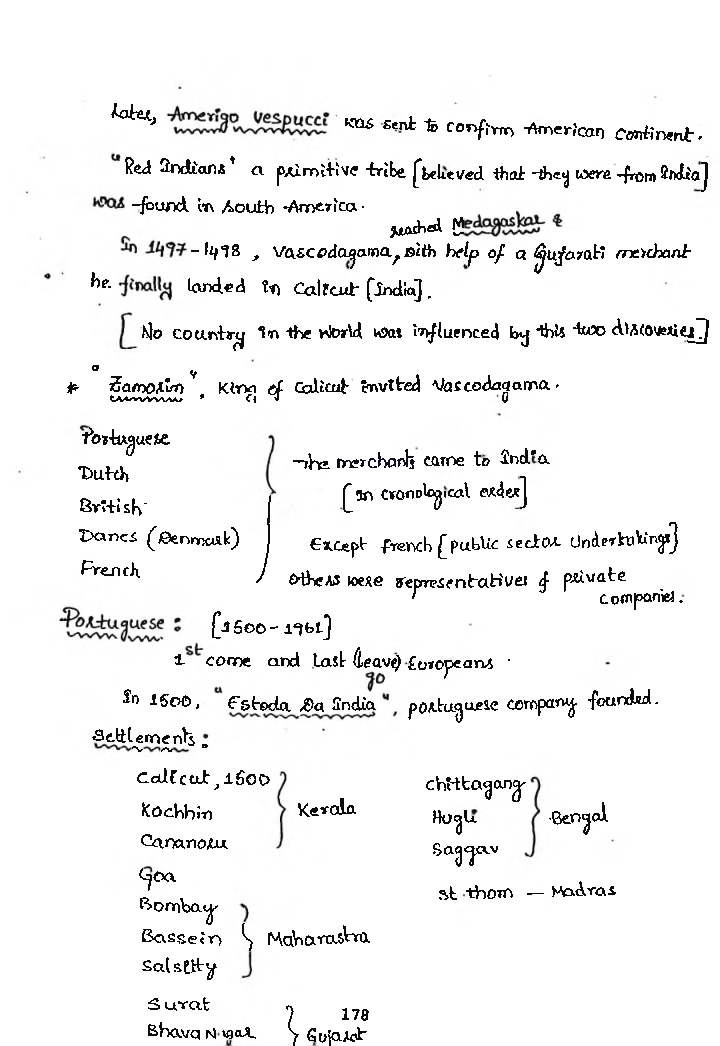 Later, Amerigo Vespucci was sent to confirm American Continent.
"Red Indians" a primitive tribe [believed that they were from India]
was found in South America.
reached Medagaskar &
In 1497-1498, Vascodagama, with help of a Gujarati merchant
he finally landed in Calicut [India].
[No country in the world was influenced by this two discoveries.]
* "Zamorin", King of Calicut invited Vascodagama.
Portuguese
Dutch
British
Danes (Denmark)
French
The merchants came to India
[In cronological order]
Except French [public sector Undertakings]
others were representatives of private
companies.
Portuguese: [1500-1961]
1st come and last (leave) Europeans.
go
In 1500, "Estoda Da India", portuguese company founded.
Settlements:
Calicut, 1500
Kochhin
Cananoru
Kerala
Goa
Bombay
Bassein
Salsetty
Maharastra
Surat
Bhava Nagar
Gujarat
Chittagang
Hugli
Saggav
Bengal
St. thom — Madras
178